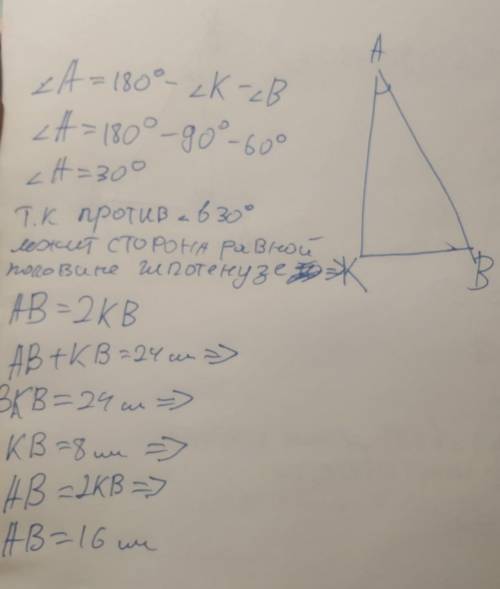 ∠A = 180° - ∠K - ∠B
∠A = 180° - 90° - 60°
∠A = 30°
Т.К против ∠ в 30°
лежит сторона равной
половине гипотенузе =>
AB = 2KB
AB + KB = 24 см =>
3KB = 24 см =>
KB = 8 см =>
AB = 2KB =>
AB = 16 см
A
K
B